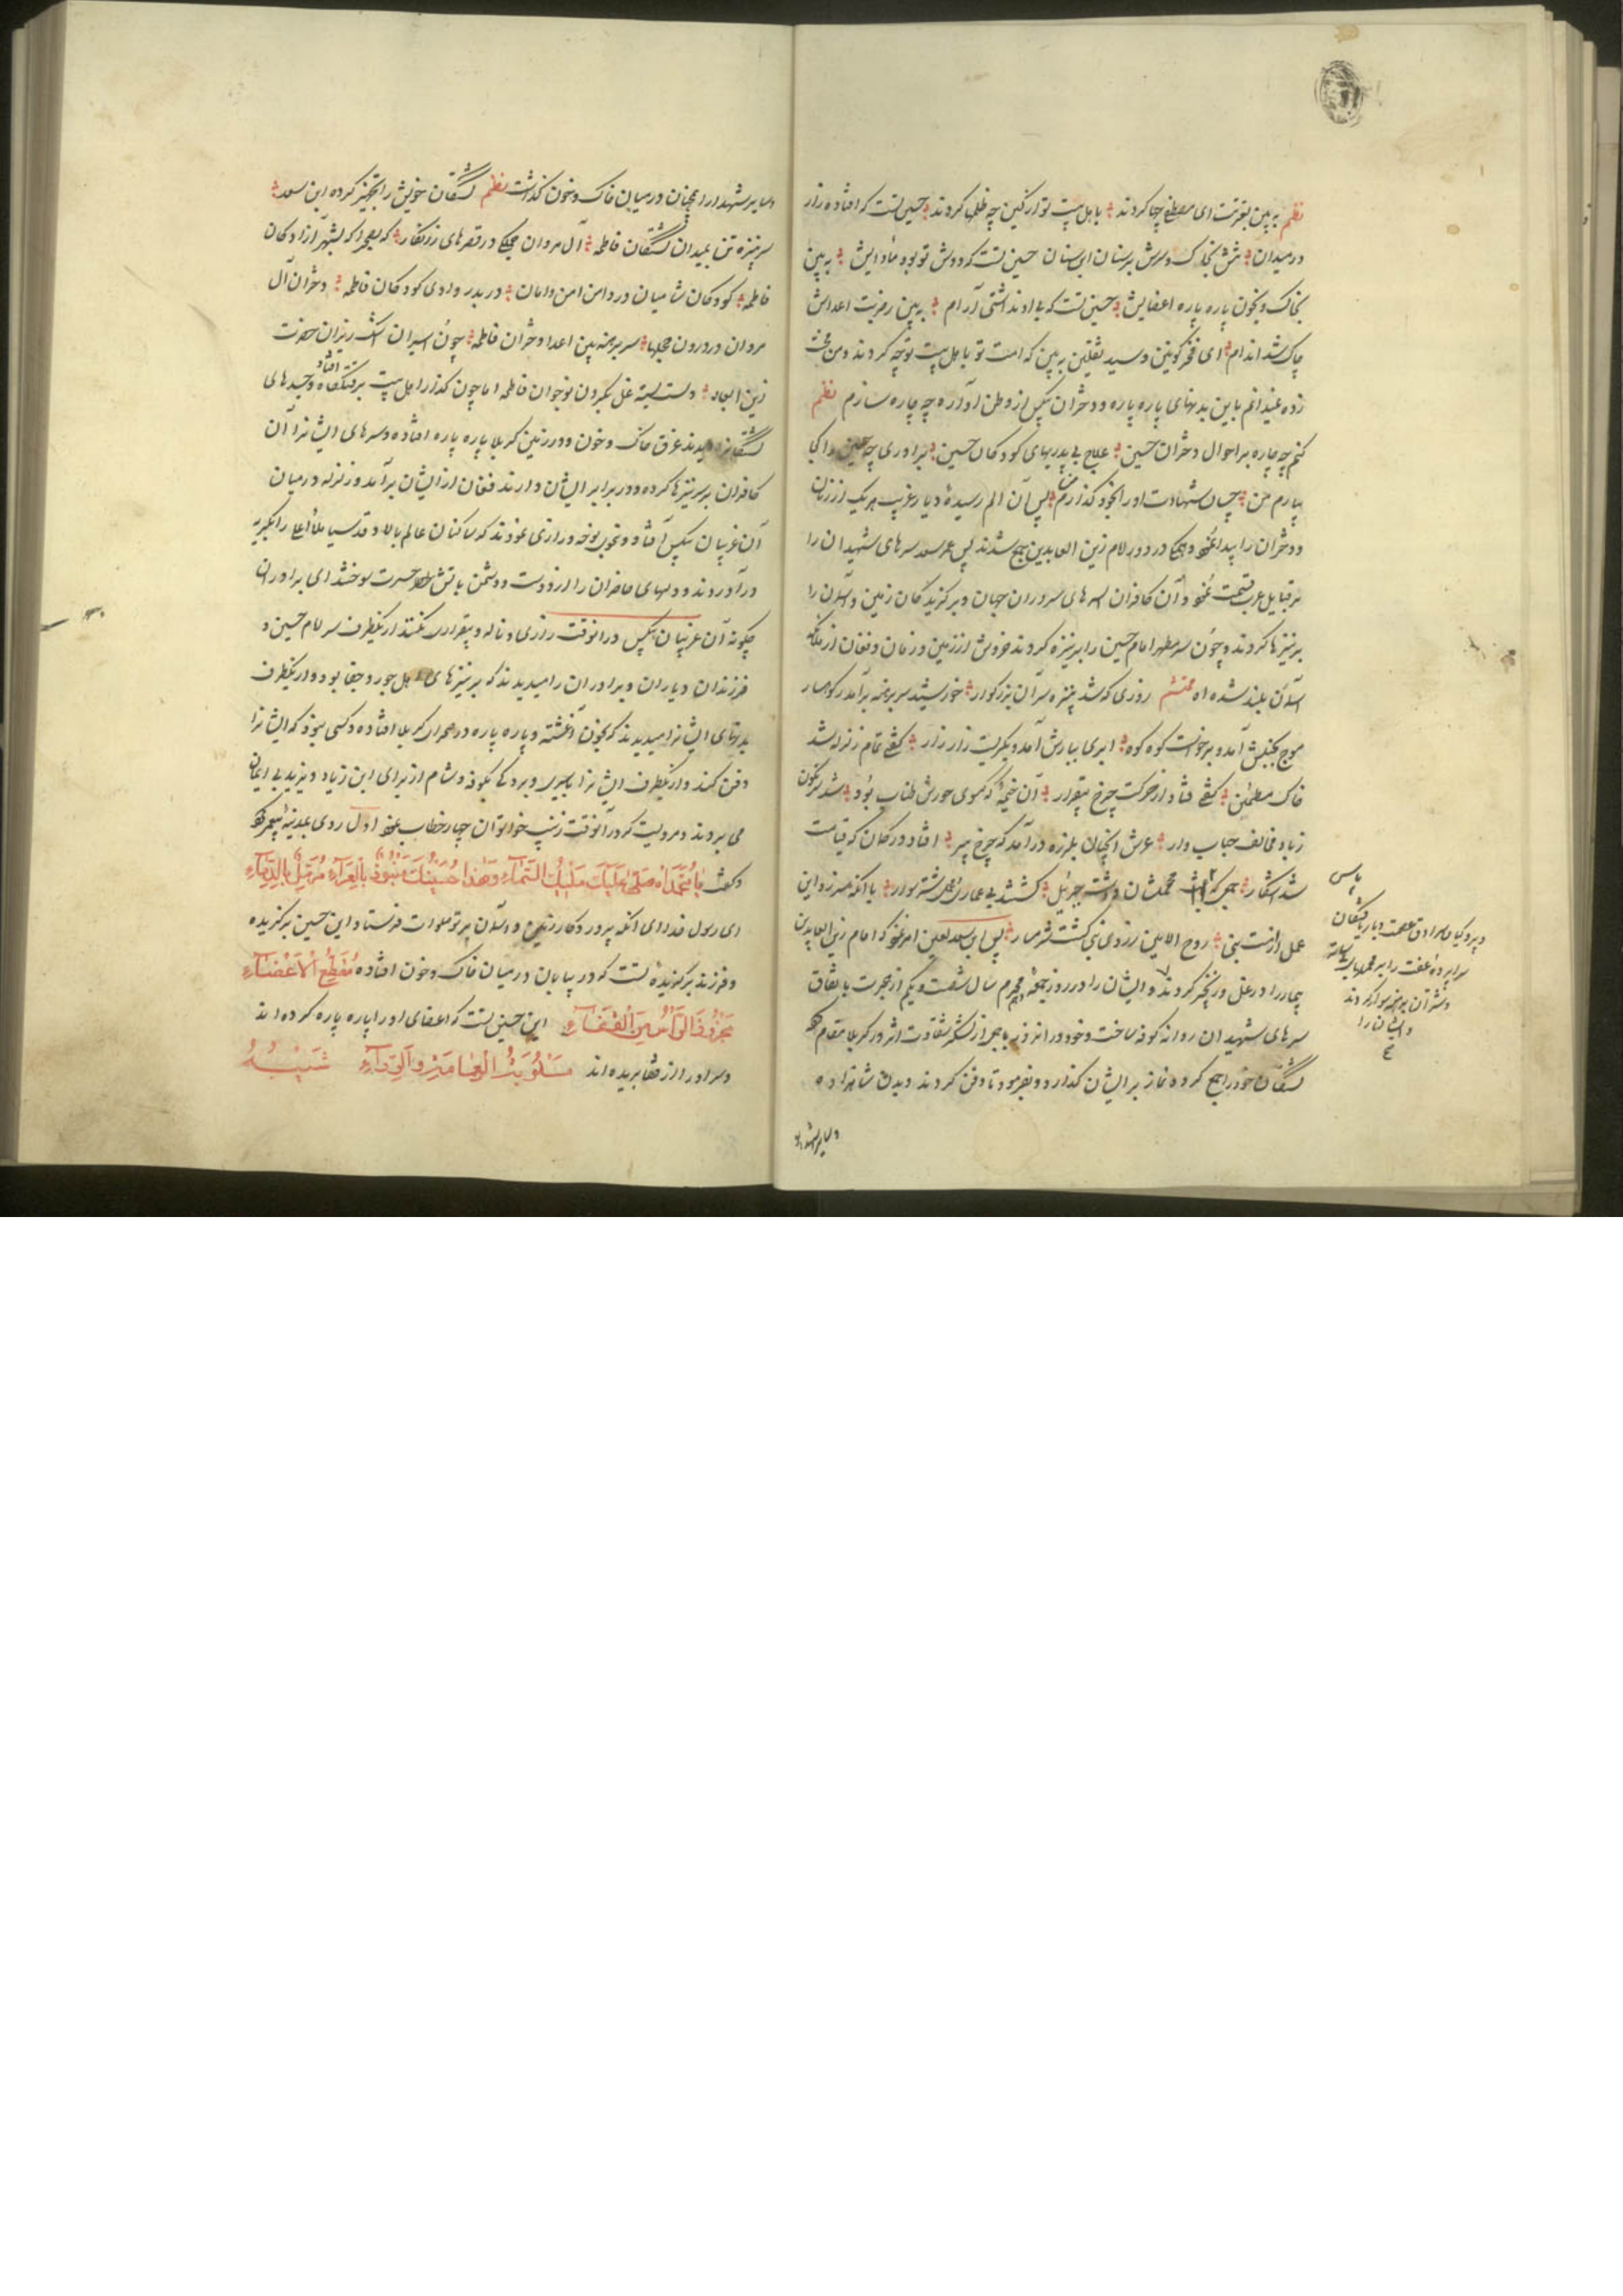 نظم به بین بعترتت ای مصطفی چها کردند باهل بیت تو از کین چه ظلمها کردند حسین تست که افتاده زار
در میدان تنش بخاک و سرش بر سنان ابن سنان حسین تست که دوش تو بود مأوایش به بین
بخاک و بخون پاره پاره اعضایش حسین تست که با او نداشتی آرام به بین ز ضربت اعداش
چاک شد اندام ای فخر کونین و سید ثقلین به بین که امت تو با اهل بیت تو چه کردند و من محنت
زده نمیدانم باین بدنهای پاره پاره و دختران بیکس از وطن آواره چه چاره سازم نظم
کنم چه چاره بر احوال دختران حسین علاج بی پدریهای کودکان حسین برادری چو حسین از کجا
بیارم من چسان شهادت او را بخود گذارم من پس آن الم رسیده دیار غربت هر یک از زنان
و دختران را پیدا نمود و همگی در دور امام زین العابدین جمع شدند پس عمر سعد سرهای شهیدان را
بر قبایل عرب قسمت نمود و آن کافران سرهای سروران جهان و برگزیدگان زمین و آسمان را
بر نیزها کردند و چون سر مطهر امام حسین را بر نیزه کردند خروش از زمین و زمان و فغان از ملائکه
آسمان بلند شد آه محتشم روزی که شد بنیزه سر آن بزرگوار خورشید سر برهنه برآمد ز کوهسار
موج بجنبش آمد و برخواست کوه کوه ابری ببارش آمد و بگریست زار زار گفتی تمام زلزله شد
خاک مطمئن گفتی فتاد از حرکت چرخ بیقرار آن خیمه که گیسوی حورش طناب بود شد سرنگون
ز باد مخالف حباب وار عرش آنچنان بلرزه درآمد که چرخ پیر افتاد در گمان که قیامت
شد آشکار جمعی که پاس محملشان داشت جبرئیل گشتند بی عماری و محمل شتر سوار با آنکه سر زد این
عمل از امت نبی روح الامین ز روی نبی گشت شرمسار پس ابن سعد لعین امر نمود که امام زین العابدین
بیمار را در غل و زنجیر کردند و ایشان را در روز جمعه محرم سال شصت و یکم از هجرت با اتفاق
سرهای شهیدان روانه کوفه ساخت و خود در آنروز با جمعی از لشکر شقاوت اثر در کربلا مقام نمود
کشتگان خود را جمع کرده نماز بر ایشان گذارد و بفرمود تا دفن کردند و بدن شاهزاده
و سایر شهدا را
و پردگیان سرادق عصمت و
سراپرده عفت را
و شتران برهنه سوار کردند
و ایشان را
و سایر شهدا را همچنان در میان خاک و خون گذاشت نظم کشتگان خویش را تجهیز کرده ابن سعد
سر بنیزه تن بمیدان کشتگان فاطمه آل مروان همگی در قصرهای زرنگار که بصحرا که بشهر آزادگان
فاطمه کودکان شامیان در دامن امن و امان در بدر در وادی کودکان فاطمه دختران آل
مروان در درون حجلها سر برهنه بین اعدا دختران فاطمه چون اسیران اشک ریزان حضرت
زین العباد دست بسته غل بگردن نوجوان فاطمه اما چون گذار اهل بیت بر قتلگاه افتاد و جسدهای
کشتگانرا دیدند غرق خاک و خون و در زمین کربلا پاره پاره افتاده و سرهای ایشانرا آن
کافران بر سر نیزها کرده و در برابر ایشان دارند فغان از ایشان برآمد و زلزله در میان
آن غریبان بیکس افتاد و نحوی نوحه و زاری نمودند که ساکنان عالم بالا و قدسیان ملأ اعلی را بگریه
درآوردند و دلهای حاضران را از دوست و دشمن بآتش حسرت سوختند ای برادران
چگونه آن غریبان بیکس در آنوقت زاری و ناله و بیقراری نکنند از یکطرف سر امام حسین و
فرزندان و یاران و برادران را میدیدند که بر نیزهای اهل جور و جفا بود و از یکطرف
بدنهای ایشانرا میدیدند که بخون آغشته و پاره پاره در صحرای کربلا افتاده و کسی نبود که ایشانرا
دفن کند و از یکطرف ایشانرا باسیری و بردگی بکوفه و شام از برای ابن زیاد و یزید بی ایمان
می بردند و مرویست که در آنوقت زینب خواتون چهار خطاب نمود اول روی بمدینه پیغمبر کرد
و گفت یا محمداه صلی علیک ملیک السماء و هذا حسینک منبوذ بالعراء مرمل بالدماء
ای رسول خدا ای آنکه پروردگار زمین و آسمان بر تو صلوات فرستاد این حسین برگزیده
و فرزند برگزیده تست که در بیابان در میان خاک و خون افتاده مقطع الاعضاء
مجزوز الرأس من القفاء این حسین تست که اعضای او را پاره پاره کرده اند
و سر او را از قفا بریده اند مسلوب العمامة و الرداء